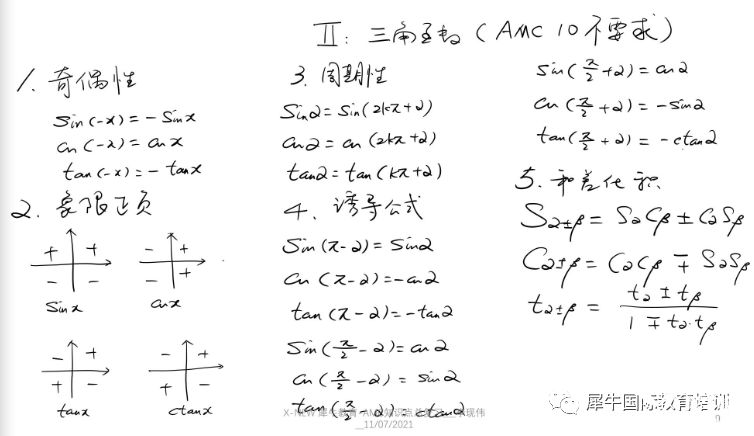 II: 三角函数 (AMC 10 不要求)
1. 奇偶性
sin(-x) = -sinx
cos(-x) = cosx
tan(-x) = -tanx
2. 象限正负
+ +
- -
sinx
- +
- +
cosx
- +
+ -
tanx
- +
+ -
ctanx
3. 周期性
sinα = sin(2kπ+α)
cosα = cos(2kπ+α)
tanα = tan(kπ+α)
4. 诱导公式
sin(π-α) = sinα
cos(π-α) = -cosα
tan(π-α) = -tanα
sin(π/2 - α) = cosα
cos(π/2 - α) = sinα
tan(π/2 - α) = ctanα
sin(π/2 + α) = cosα
cos(π/2 + α) = -sinα
tan(π/2 + α) = -ctanα
5. 和差化积
Sα±β = SαCβ ± CαSβ
Cα±β = CαCβ ∓ SαSβ
tα±β = (tα ± tβ) / (1 ∓ tα·tβ)
X-NEW 犀牛教育
11/07/2021
犀牛国际教育培训
9